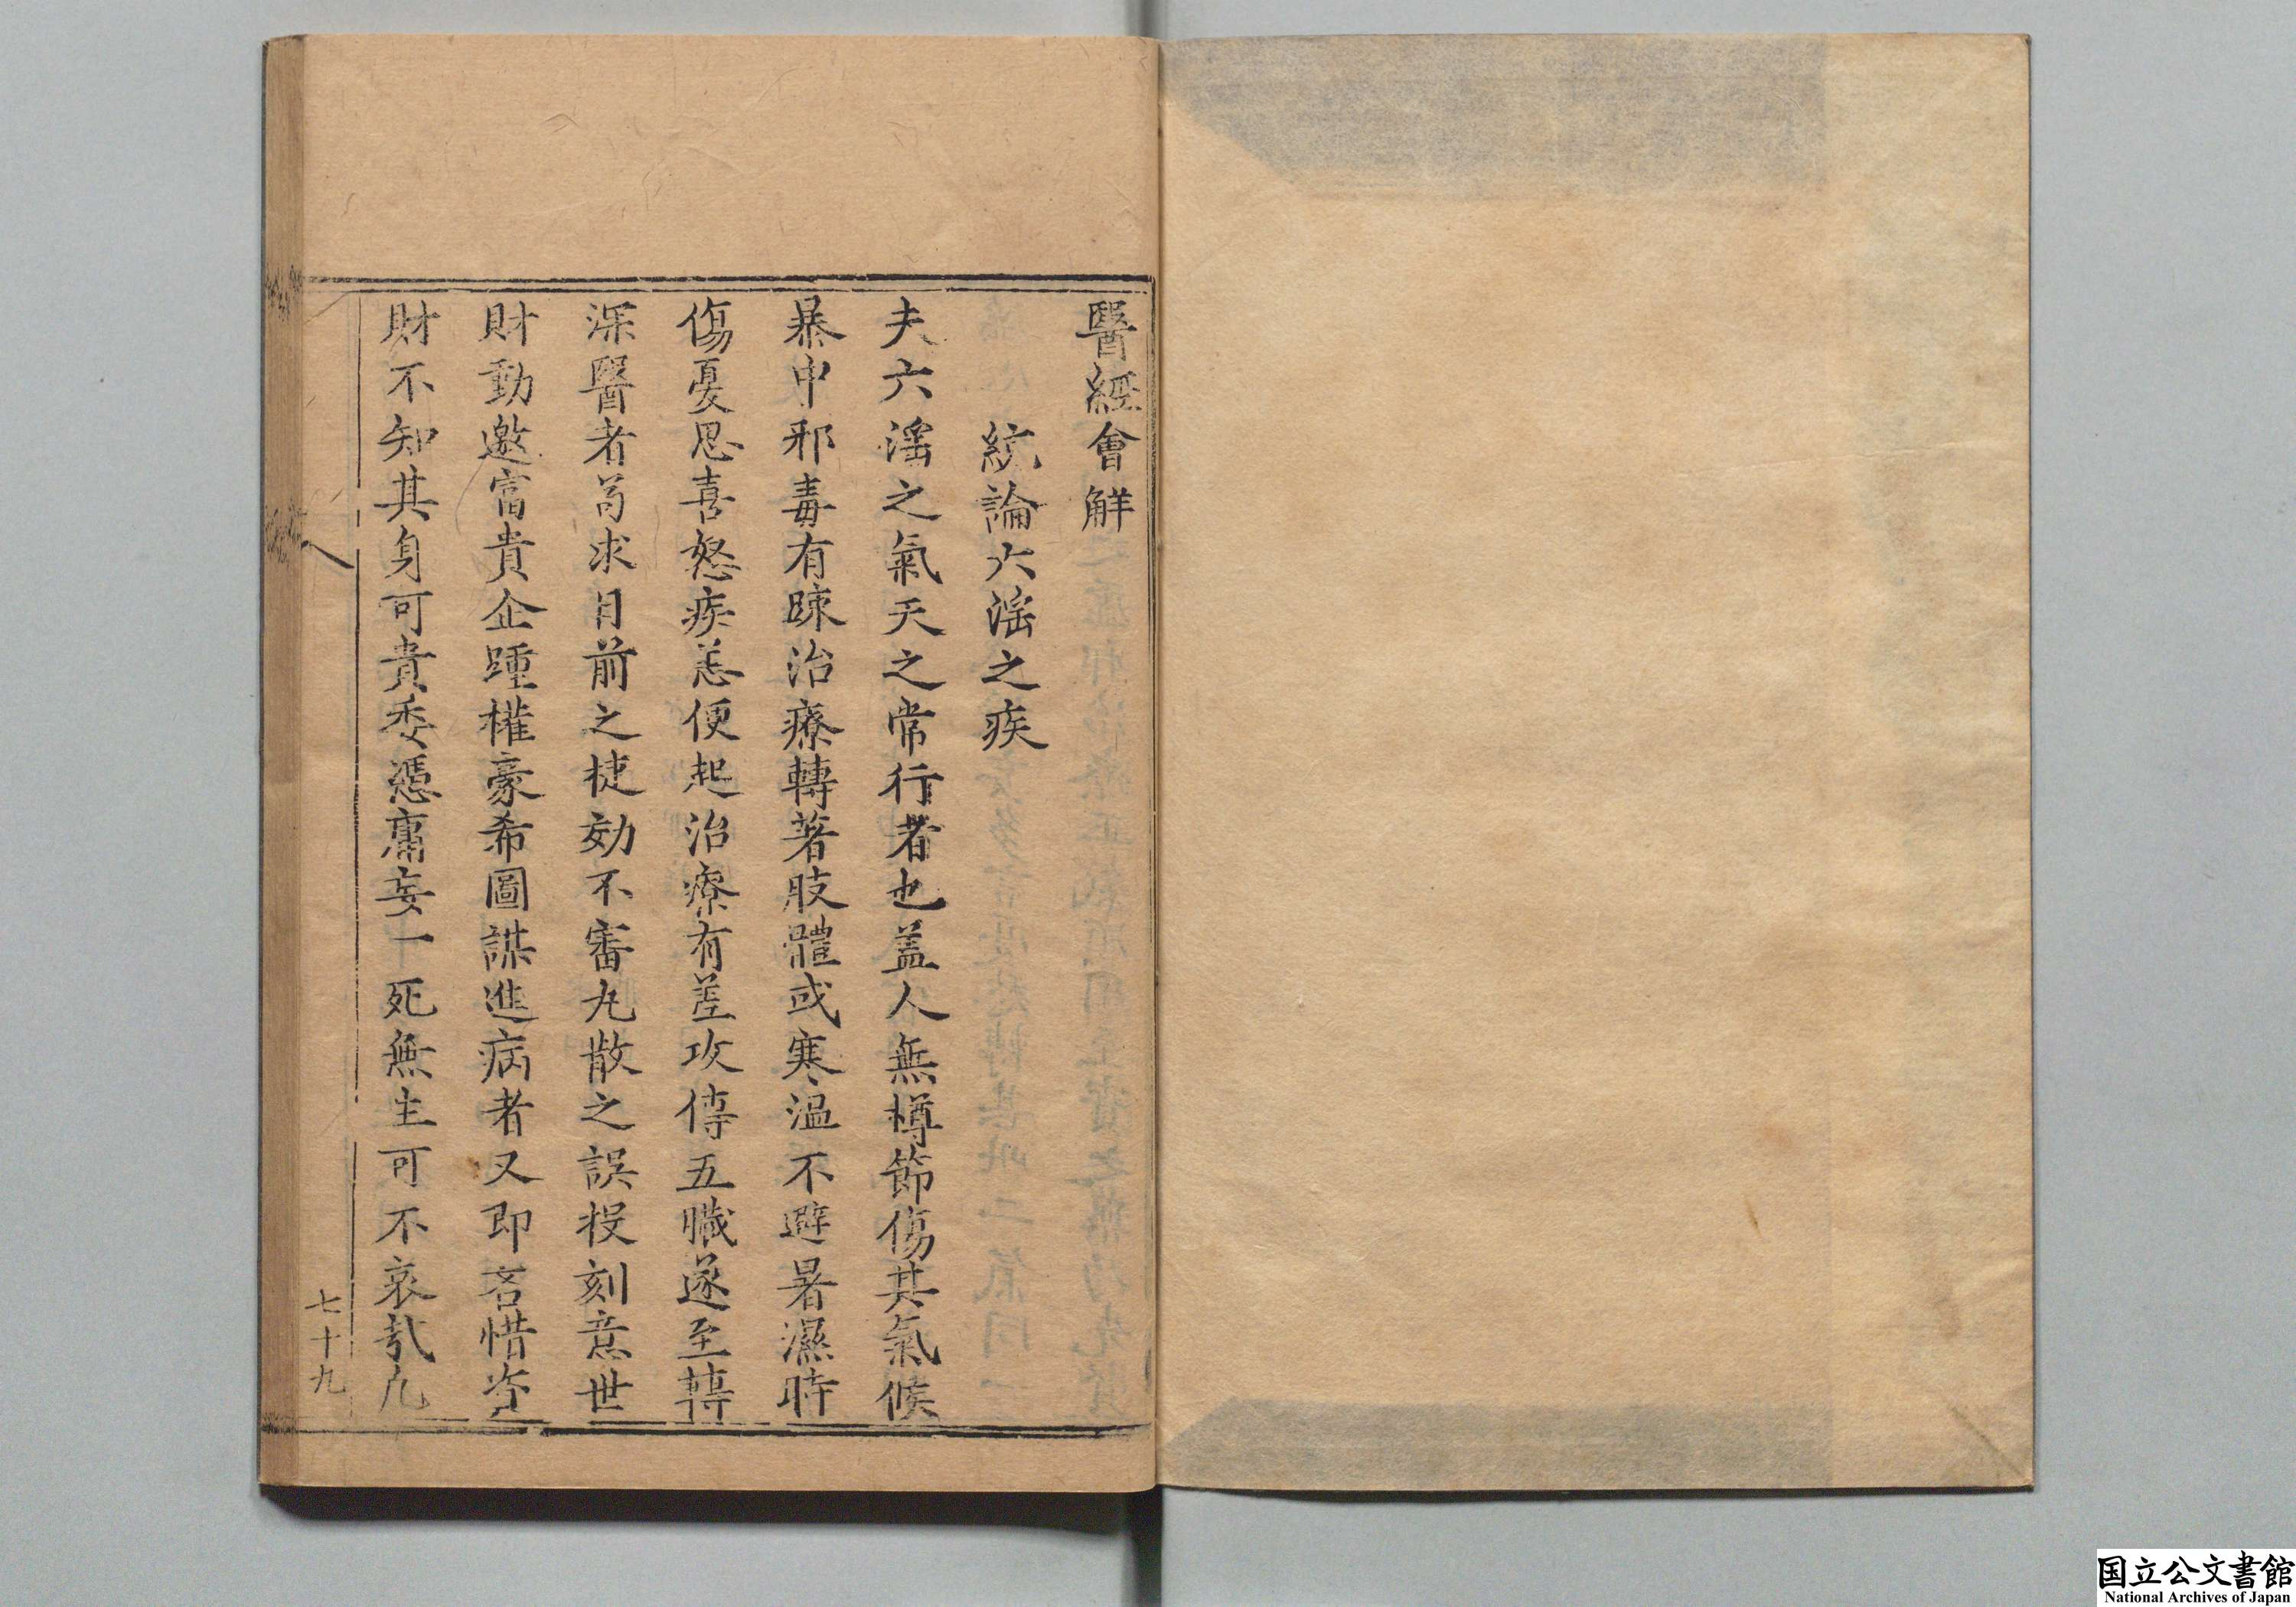 醫經會解
統論六淫之疾
夫六淫之氣天之常行者也盖人無樽節傷其氣候
暴中邪毒有踈治療轉著肢體或寒溫不避暑濕時
傷憂思喜怒疾恙便起治療有差攻傳五臟遂至轉
深醫者苟求目前之捷効不審丸散之誤投刻意世
財動邀富貴企踵權豪希圖謀進病者又即吝惜資
財不知其身可貴委慿庸妄一死無生可不哀㢤凢
七十九
国立公文書館
National Archives of Japan